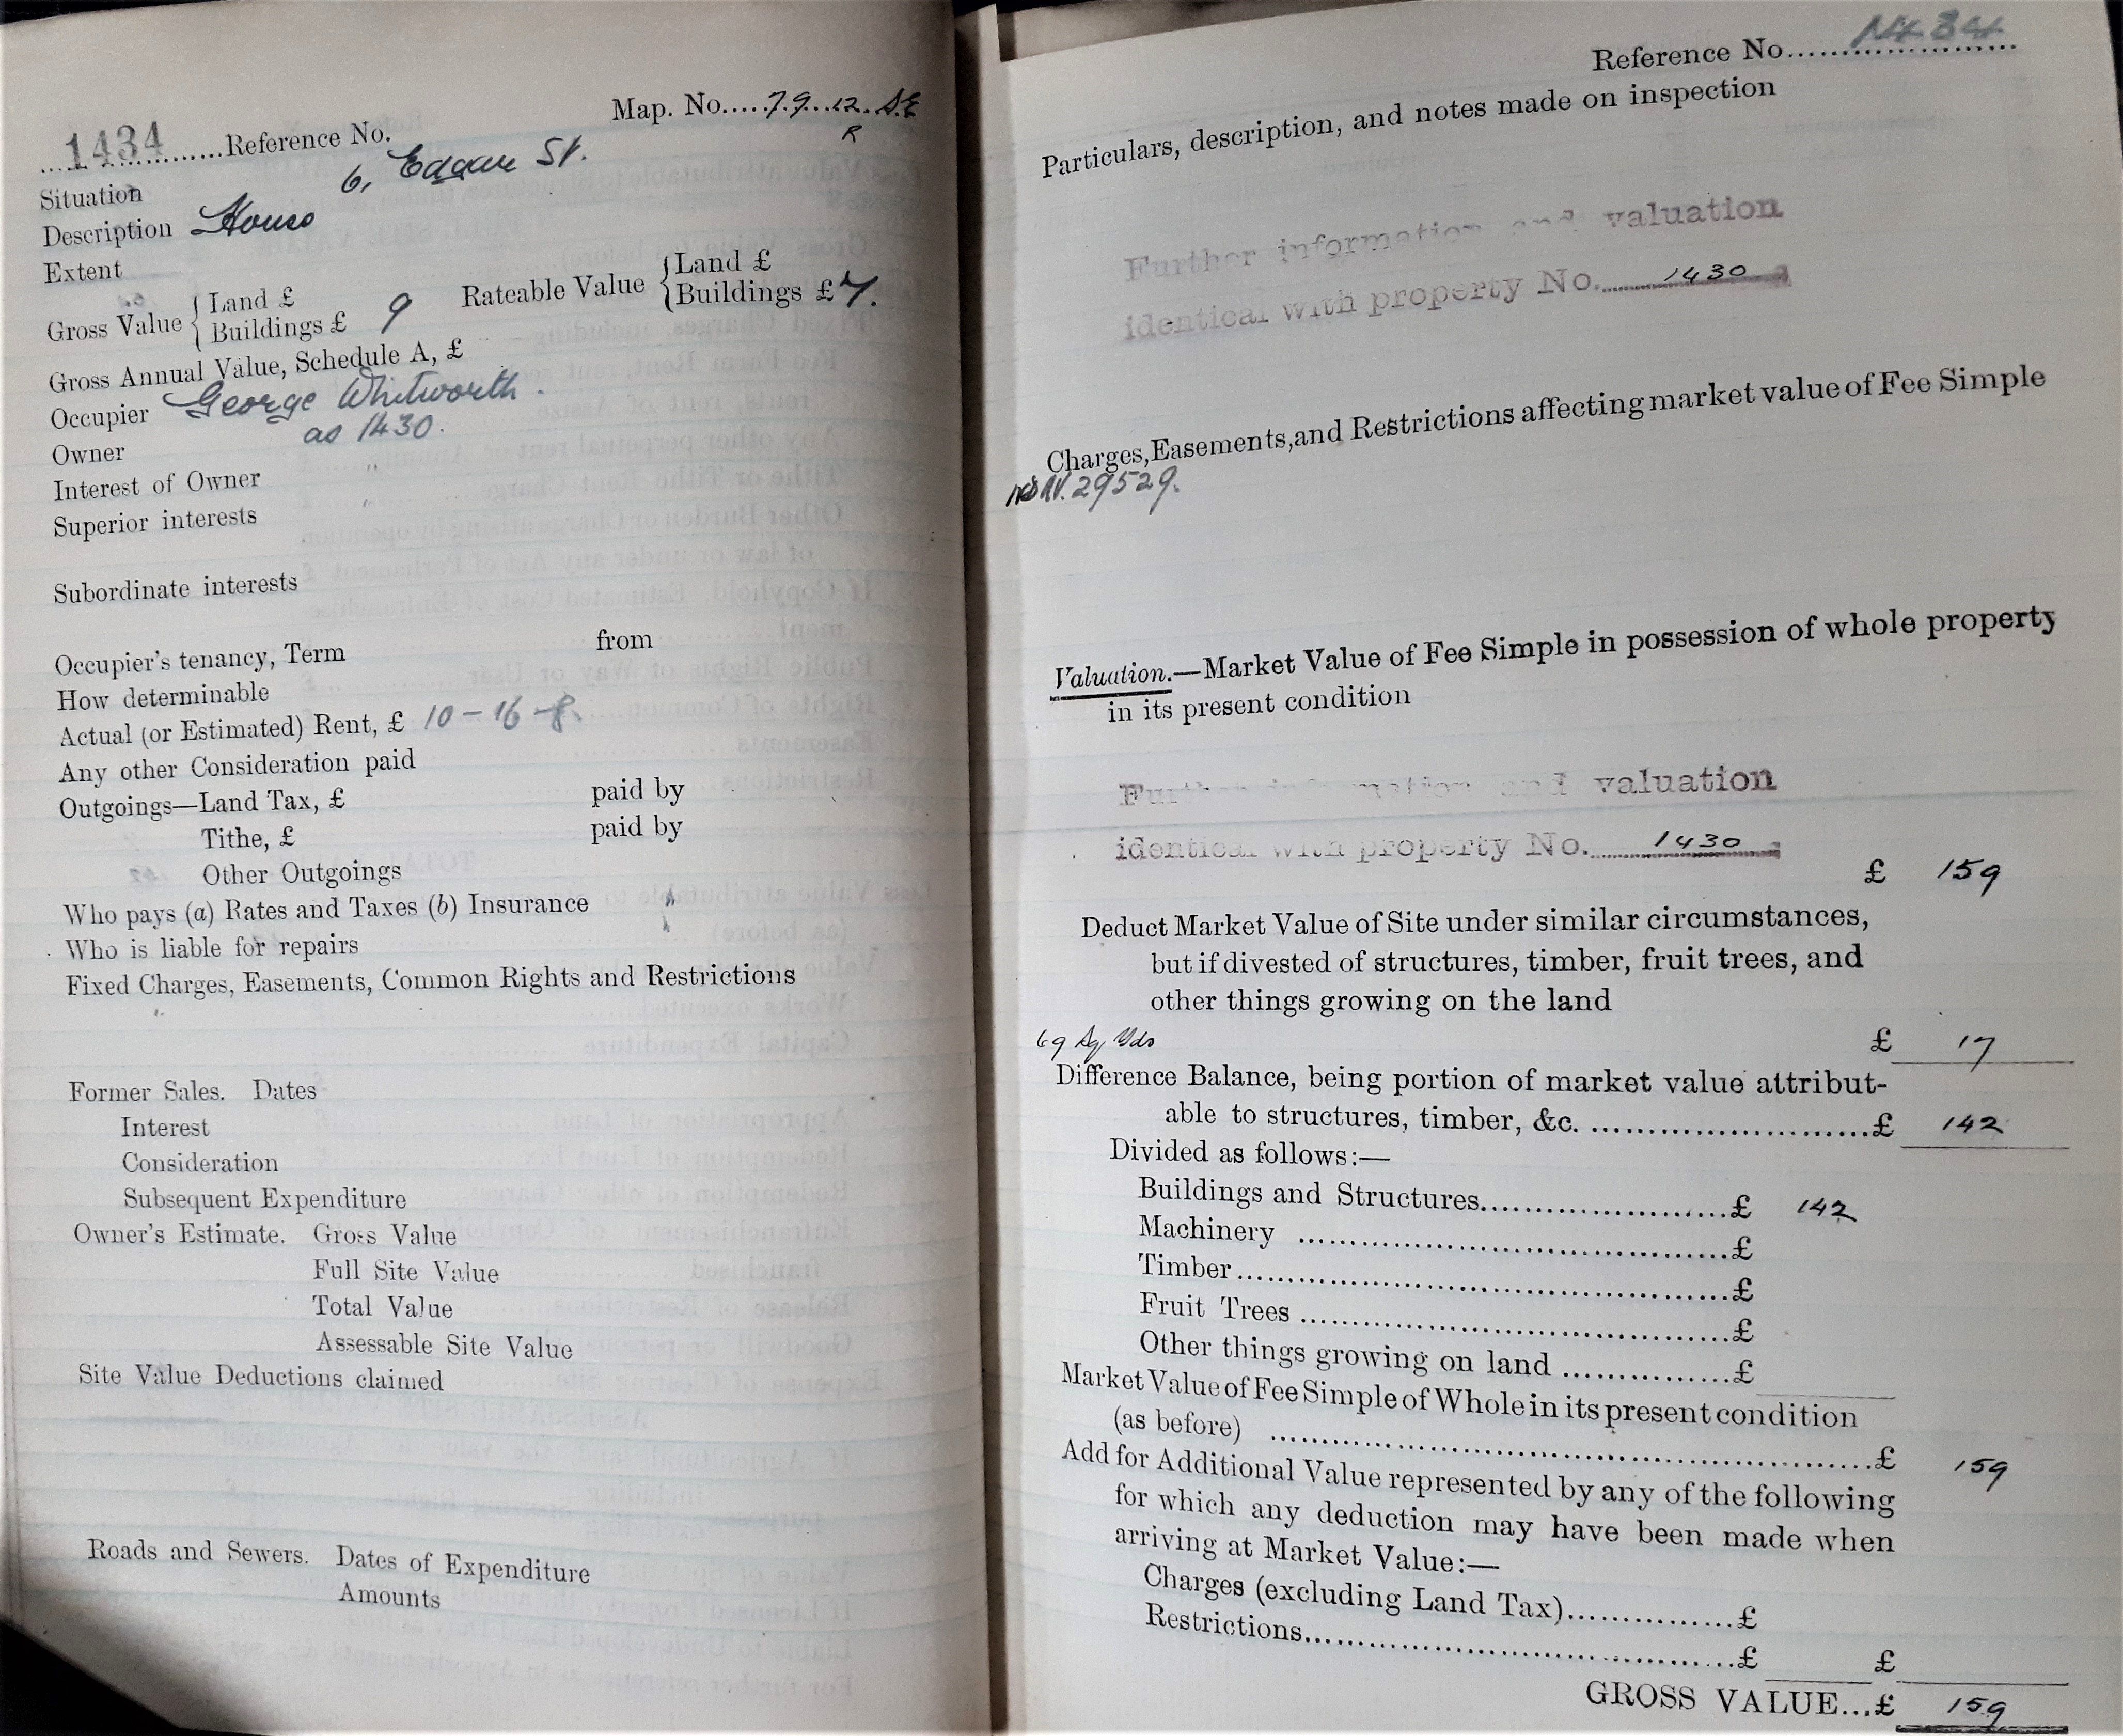 1434 Reference No. Map. No. 79.12. S.E
R
Situation 6, Edgar St.
Description House
Extent
Gross Value { Land £
Buildings £ 9 Rateable Value { Land £
Buildings £ 7.
Gross Annual Value, Schedule A, £
Occupier George Whitworth.
Owner as 1430.
Interest of Owner "
Superior interests "
Subordinate interests
Occupier's tenancy, Term from
How determinable
Actual (or Estimated) Rent, £ 10-16-8.
Any other Consideration paid
Outgoings—Land Tax, £ paid by
Tithe, £ paid by
Other Outgoings
Who pays (a) Rates and Taxes (b) Insurance
Who is liable for repairs
Fixed Charges, Easements, Common Rights and Restrictions
Former Sales. Dates
Interest
Consideration
Subsequent Expenditure
Owner's Estimate. Gross Value
Full Site Value
Total Value
Assessable Site Value
Site Value Deductions claimed
Roads and Sewers. Dates of Expenditure
Amounts
Reference No. 1434
Particulars, description, and notes made on inspection
Further information and valuation
identical with property No. 1430
Charges, Easements, and Restrictions affecting market value of Fee Simple
29529.
Valuation.—Market Value of Fee Simple in possession of whole property
in its present condition
Further information and valuation
identical with property No. 1430
£ 159
Deduct Market Value of Site under similar circumstances,
but if divested of structures, timber, fruit trees, and
other things growing on the land
69 Sq Yds £ 17
Difference Balance, being portion of market value attribut-
able to structures, timber, &c. £ 142
Divided as follows:—
Buildings and Structures £ 142
Machinery £
Timber £
Fruit Trees £
Other things growing on land £
Market Value of Fee Simple of Whole in its present condition
(as before) £ 159
Add for Additional Value represented by any of the following
for which any deduction may have been made when
arriving at Market Value:—
Charges (excluding Land Tax) £
Restrictions £ £
GROSS VALUE...£ 159